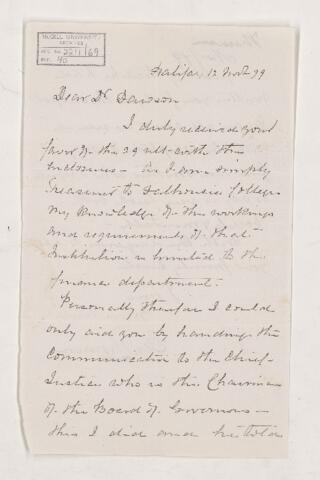 McGILL UNIVERSITY
ARCHIVES
ACC. NO. 2211/69
REF. 40
Halifax, 12 Novr 79
Dear Dr Dawson
I duly received your
favor of the 29 ult. with the
enclosures — As I am simply
Treasurer to Dalhousie College
my knowledge of the workings
and requirements of that
Institution is limited to the
finance department.
Personally therefore I could
only aid you by handing the
Communication to the Chief-
Justice who is the Chairman
of the Board of Governors —
this I did and he told